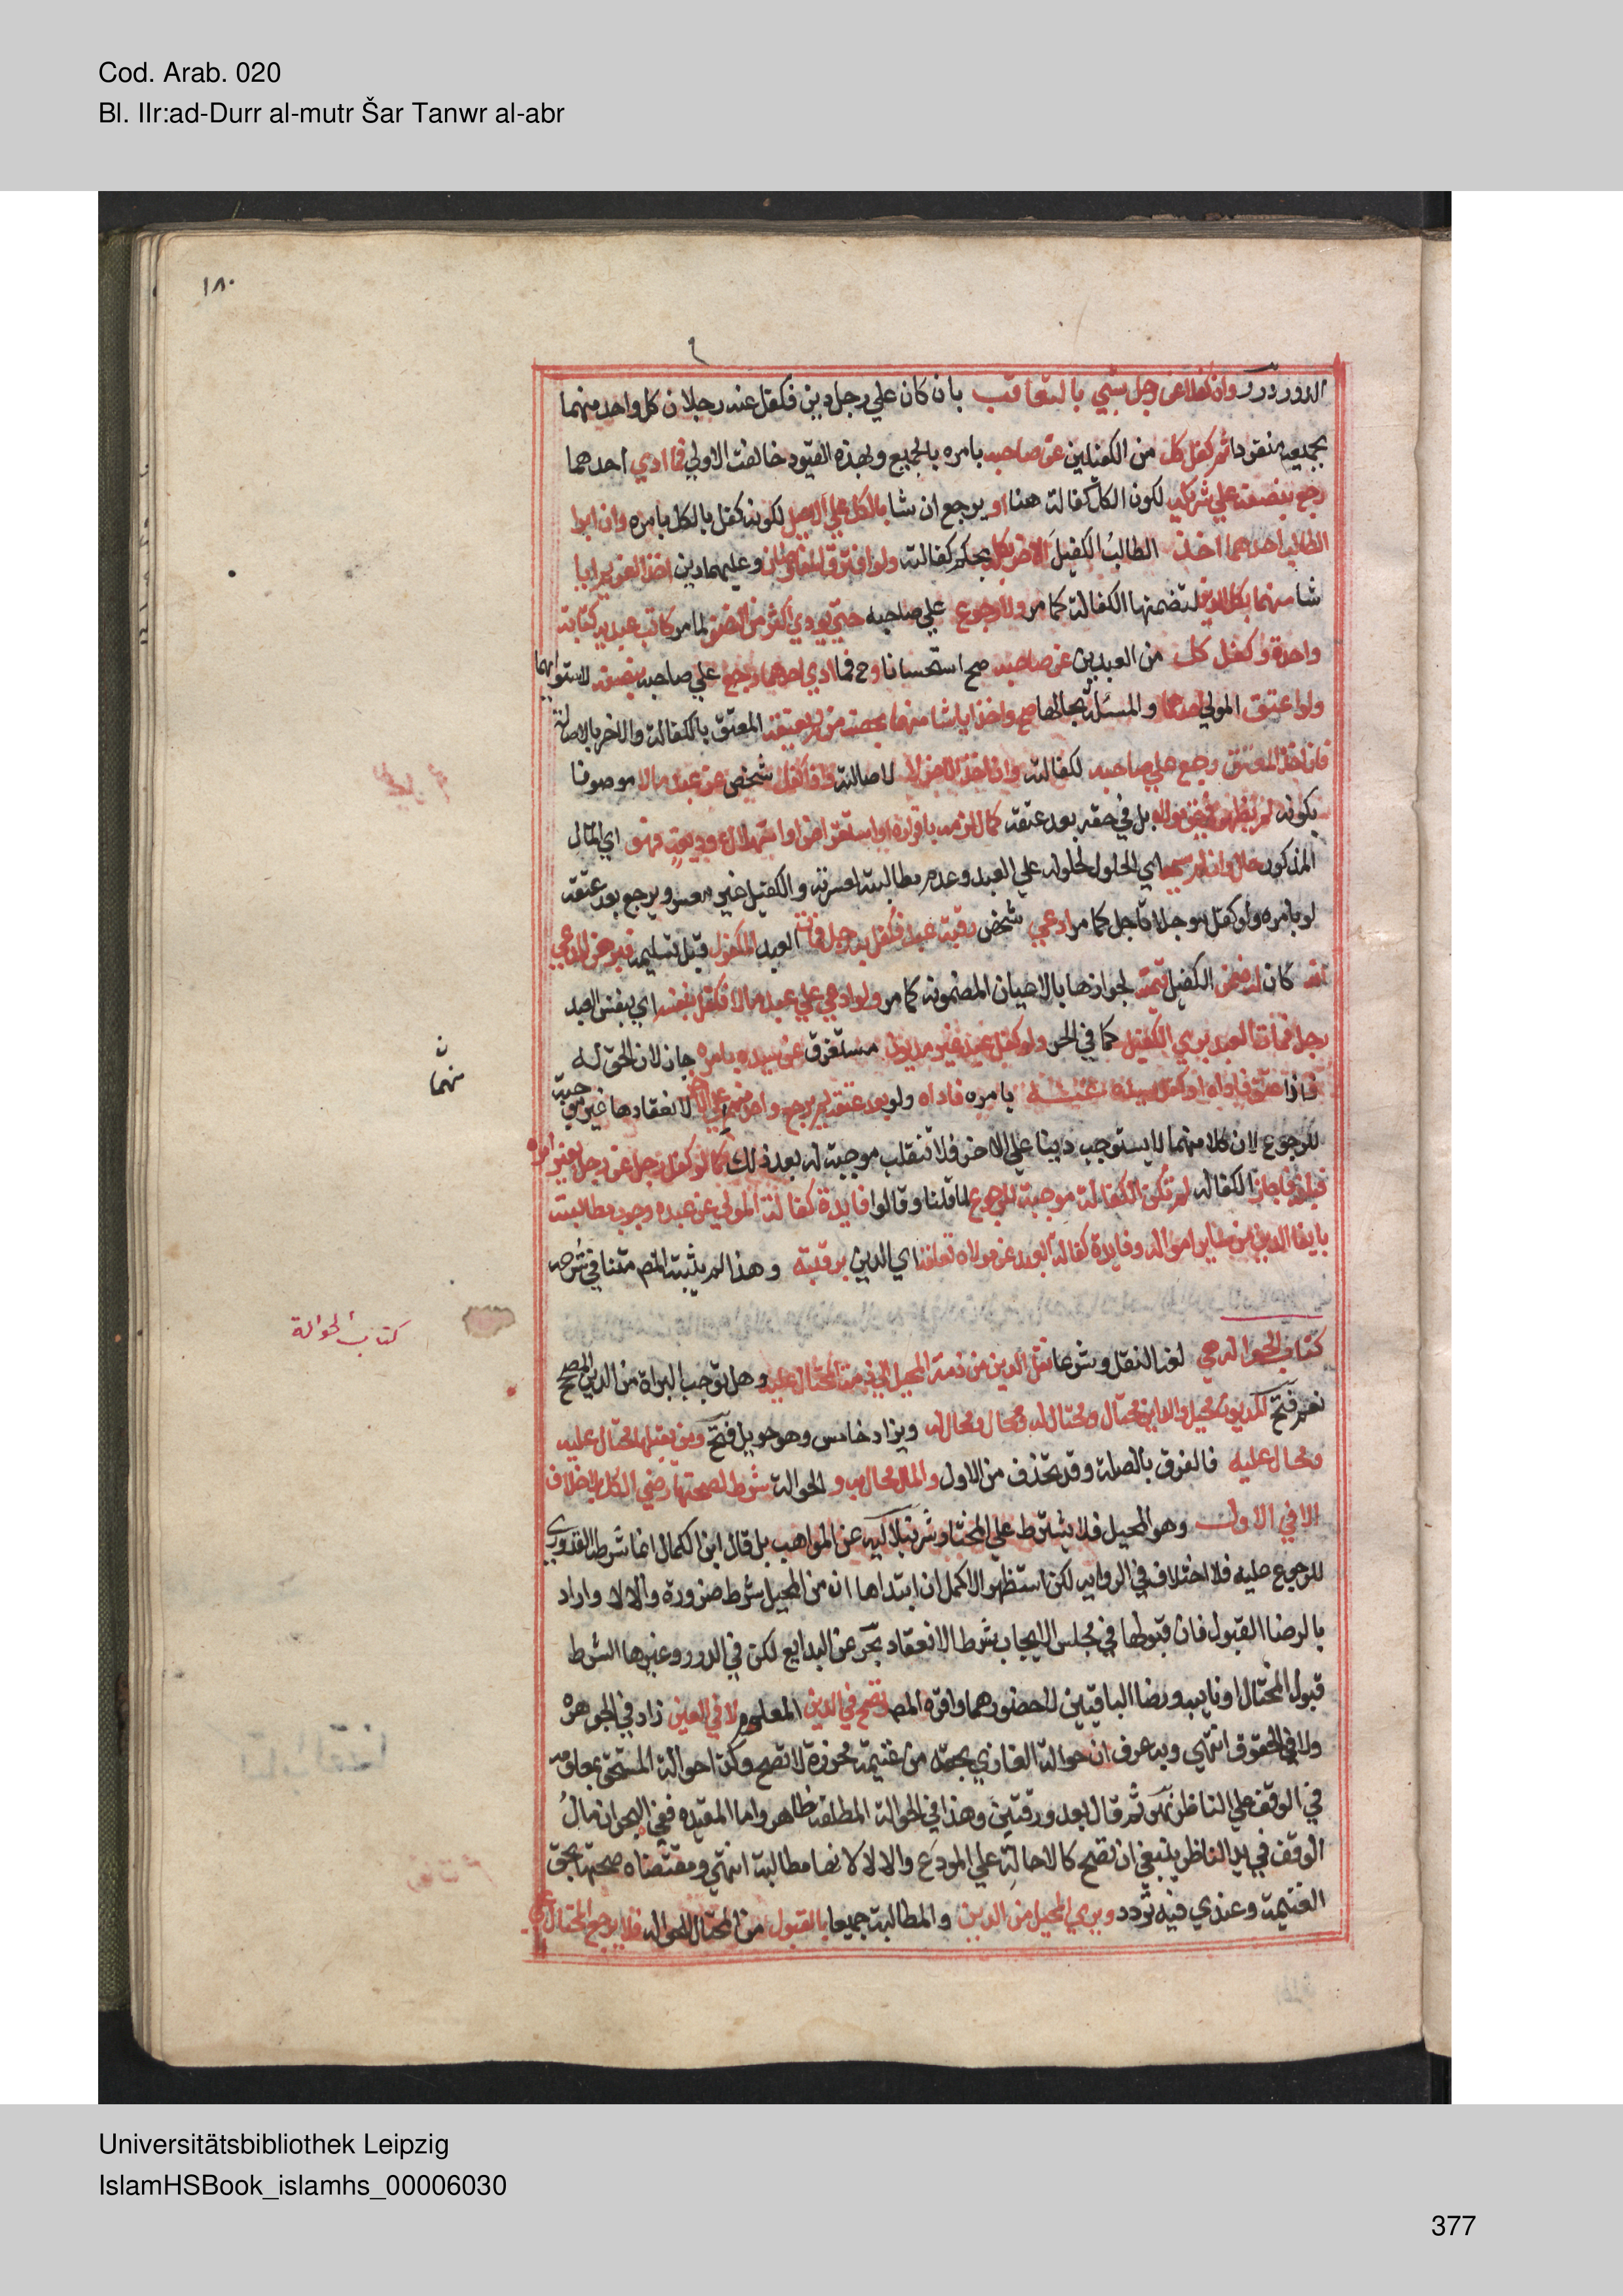 Cod. Arab. 020
Bl. IIr:ad-Durr al-mutr Šar Tanwr al-abr
١٨٠
الدور درر وان كفلا عن رجل بشي بالتعاقب بان كان علي رجل دين فكفل عنه رجلان كل واحد منهما
بجميعه منفردا ثم كفل كل من الكفيلين عن صاحبه بامره بالجميع وبهذه القيود خالفت الاولي فما ادي احدهما
رجع بنصفه علي شريكه لكون الكل كفالة هنا او يرجع ان شا بالكل علي الاصيل لكونه كفل بالكل بامره وان ابرا
الطالب احدهما اخذ الطالبُ الكفيلَ الاخر بكله بحكم كفالته ولو افترق المفاوضان وعليهما دين اخذ الغريم ايا
شا منهما بكل الدين لتضمنها الكفالة كما مر ولا رجوع علي صاحبه حتي يودي اكثر من النصف لما مر كاتب عبديه كتابة
واحدة وكفل كل من العبدين عن صاحبه صح استحسانا وح فما ادي احدهما رجع علي صاحبه بنصفه لاستوائهما
ولو اعتق المولي احدهما والمسئلة بحالها صح واخذ ايا شا منهما بحصة من لم يعتقه المعتق بالكفالة والاخر بالاصالة
فان اخذ المعتق رجع علي صاحبه لكفالته وان اخذ الاخر لا لاصالته واذا كفل شخص عن عبد مالا موصوفا
بكونه لم يظهر في حق مولاه بل في حقه بعد عتقه كمال لزمه باقراره او استقراض او استهلاك وديعة فهو اي المال
المذكور حال وان لم يسمه اي الحلول لحلوله علي العبد وعدم مطالبته لعسرته والكفيل غير معسر ويرجع بعد عتقه
لو بامره ولو كفل موجلا تاجل كما مر ادعي شخص رقبة عبد فكفل به رجل فمات العبد المكفول قبل تسليمه فبرهن المدعي
انه كان له ضمن الكفيل قيمته لجوازها بالاعيان المضمونة كما مر ولو ادعي علي عبد مالا فكفل بنفسه اي بنفس العبد
رجل فمات العبد بري الكفيل كما في الحر ولو كفل عبد غير مديون مستغرق عن سيده بامره جاز لان الحق له
فاذا عتق فاداه او كفل سيده عنه بامره فاداه ولو بعد عتقه لم يرجع واحد منهما علي الاخر لانعقادها غير موجبة
للرجوع لان كلا منهما لا يستوجب دينا علي الاخر فلا تنقلب موجبة له بعد ذلك كما لو كفل رجل عن رجل بغير امره
فبلغه فاجاز الكفالة لم تكن الكفالة موجبة للرجوع لما قلنا وقالوا فايدة كفالة المولي عن عبده وجوب مطالبته
بايفا الدين من ساير امواله وفايدة كفالة العبد عن مولاه تعلقه اي الدين برقبته وهذا لم يثبته المص متنا في شرحه
كتاب الحوالة هي لغة النقل وشرعا نقل الدين من ذمة المحيل الي ذمة المحتال عليه وهل توجب البراة من الدين المصحح
نعم فتح المديون محيل والداين محتال ومحتال له ومحال ومحال له ويزاد خامس وهو حويل فتح ومن يقبلها محتال عليه
ومحال عليه فالفرق بالصلة وقد تحذف من الاول والمال محال به و الحوالة شرط لصحتها رضي الكل بلا خلاف
الا في الاول وهو المحيل فلا يشترط علي المختار شرنبلاليه عن المواهب بل قال ابن الكمال انما شرطه القدوري
للرجوع عليه فلا اختلاف في الرواية لكن استظهر الاكمل ان ابتداها ان من المحيل شرط ضرورة والا لا واراد
بالرضا القبول فان قبولها في مجلس الايجاب شرط الانعقاد بحر عن البدايع لكن في الدرر وغيرها الشرط
قبول المحتال او نايبه ورضا الباقيين لا حضورهما واقره المص وتصح في الدين المعلوم لا في العين زاد في الجوهره
ولا في الحقوق انتهي وبه عرف ان حوالة الغازي بحقه من غنيمة محرزة لا تصح وكذا حوالة المستحق بمعلومه
في الوقف علي الناظر نهر ثم قال بعد ورقتين وهذا في الحوالة المطلقة ظاهر واما المقيده ففي البحر ان مال
الوقف في يد الناظر ينبغي ان تصح كالاحالة علي المودَع والا لا لانها مطالبة انتهي ومقتضاه صحتها بحق
الغنيمة وعندي فيه تردد وبري المحيل من الدين والمطالبة جميعا بالقبول من المحتال للحواله فلا يرجع المحتال علي
منهما
كتاب الحوالة
Universitätsbibliothek Leipzig
IslamHSBook_islamhs_00006030
377